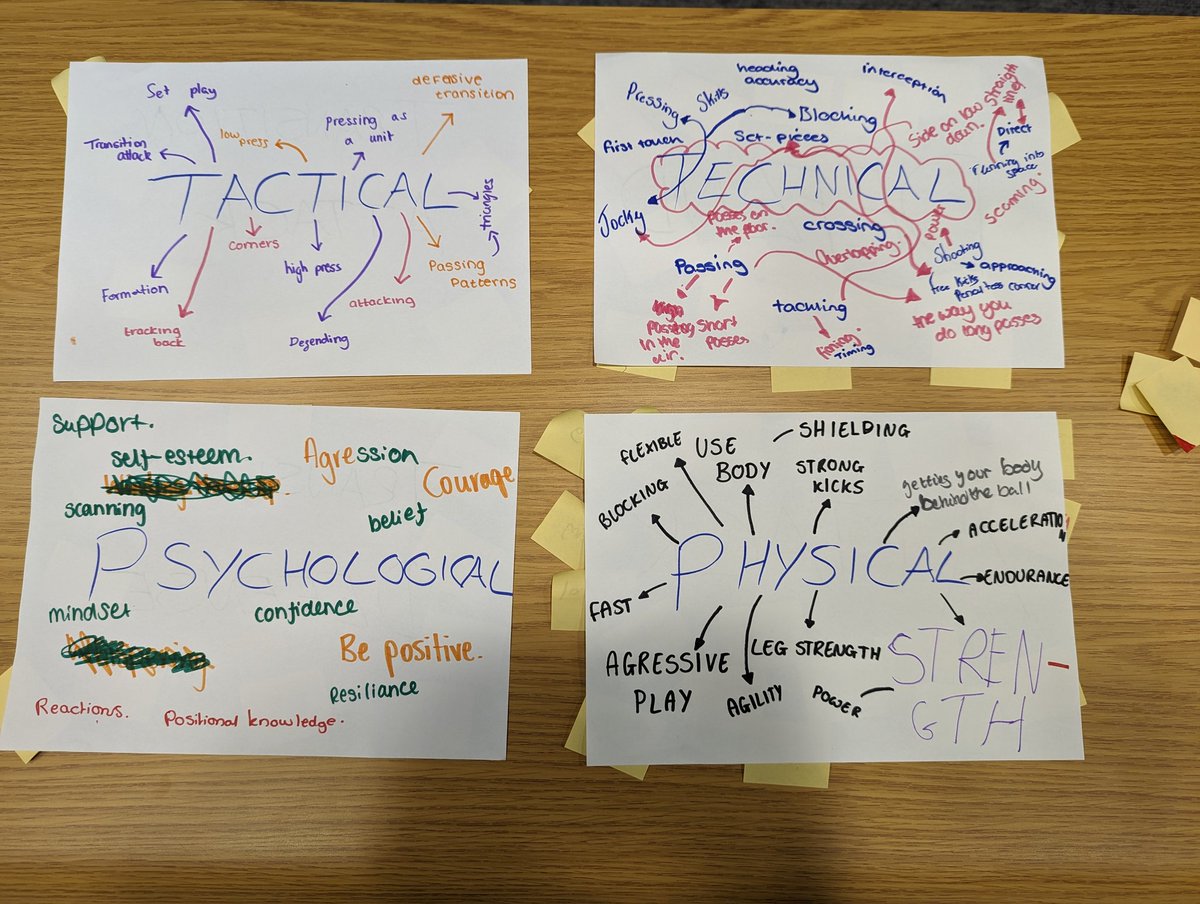 Set play
defensive
transition
Transition
attack
low
press
pressing as
a unit
TACTICAL
triangles
corners
high press
Passing
Patterns
Formation
attacking
tracking
back
Defending
heading
accuracy
interception
Pressing
Skills
Blocking
first touch
Set-pieces
Side on low
down.
straight
line
Direct
Running into
space
TECHNICAL
scanning.
Jocky
Passes on
the floor.
crossing
Power
Overlapping.
Shooting
Passing
approaching
free kicks
tackling
the way you
do long passes
Passing
in the
air.
Short
Passes
Timing
support.
self-esteem.
Agression
Courage
scanning
belief
PSYCHOLOGICAL
mindset
confidence
Be positive.
Resiliance
Reactions.
Positional knowledge.
FLEXIBLE
USE
BODY
SHIELDING
STRONG
KICKS
getting your body
behind the ball
BLOCKING
ACCELERATION
PHYSICAL
ENDURANCE
FAST
AGRESSIVE
PLAY
LEG STRENGTH
AGILITY
POWER
STREN-
GTH